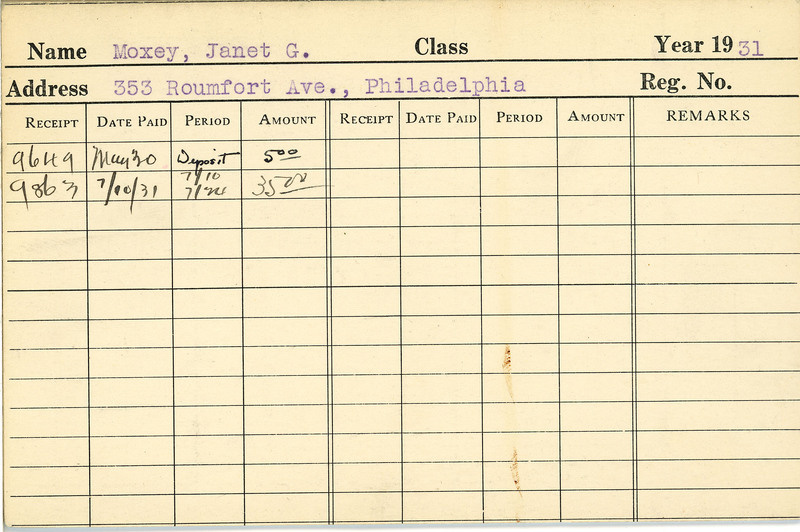 Name Moxey, Janet G. Class Year 1931
Address 353 Roumfort Ave., Philadelphia Reg. No.
RECEIPT DATE PAID PERIOD AMOUNT RECEIPT DATE PAID PERIOD AMOUNT REMARKS
9649 May 20 Deposit 5.00
9863 7/10/31 7/10 7/24 35.00